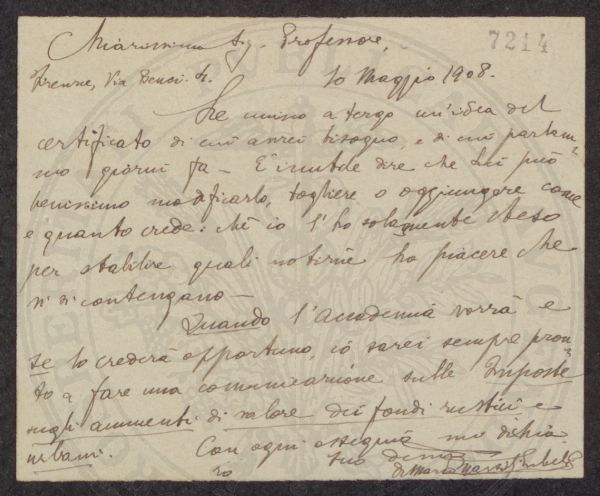 Chiarissimo Sig. Professore,
7214
Firenze, Via Benci. 4. 10 Maggio 1908.
Le unisco a tergo un'idea del
certificato di cui avrei bisogno, e di cui parlam=
mo giorni fa — E' inutile dire che Lei può
benissimo modificarlo, togliere o aggiungere come
e quanto crede: chè io l'ho solamente steso
per stabilire quali notizie ho piacere che
vi si contengano —
Quando l'Accademia vorrà e
se lo crederà opportuno, io sarei sempre pron=
to a fare una comunicazione sulle Imposte
sugli aumenti di valore dei fondi rustici e
urbani. Con ogni ossequio mi dichia
ro suo
Dr Mario